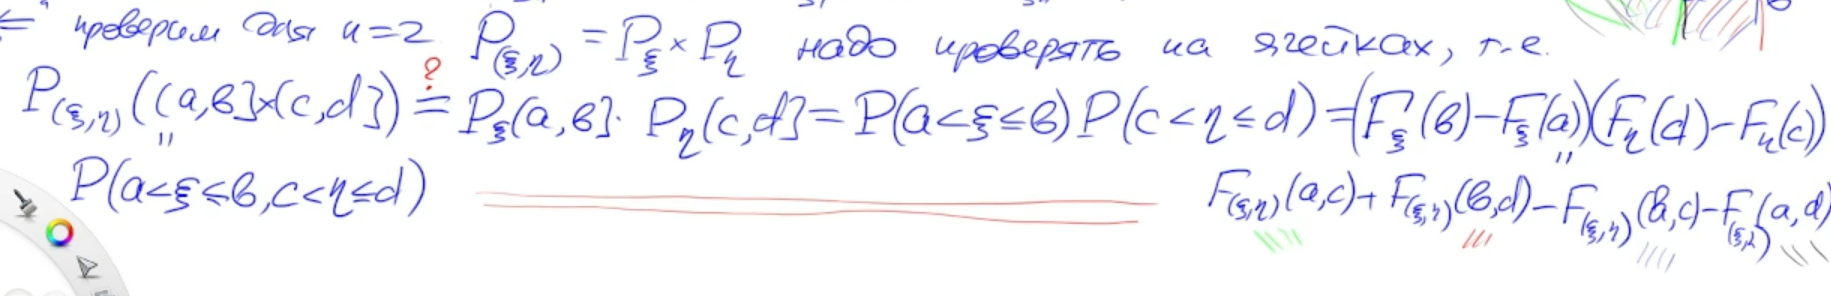 ⇐ проверим для n=2 P_(ξ,η) = P_ξ × P_η надо проверять на ячейках, т.е.
P_(ξ,η)((a,b]×(c,d]) =^? P_ξ(a,b]· P_η(c,d] = P(a<ξ≤b) P(c<η≤d) = (F_ξ(b)−F_ξ(a))(F_η(d)−F_η(c))
" "
P(a<ξ≤b, c<η≤d) F_(ξ,η)(a,c)+F_(ξ,η)(b,d)−F_(ξ,η)(b,c)−F_(ξ,η)(a,d)